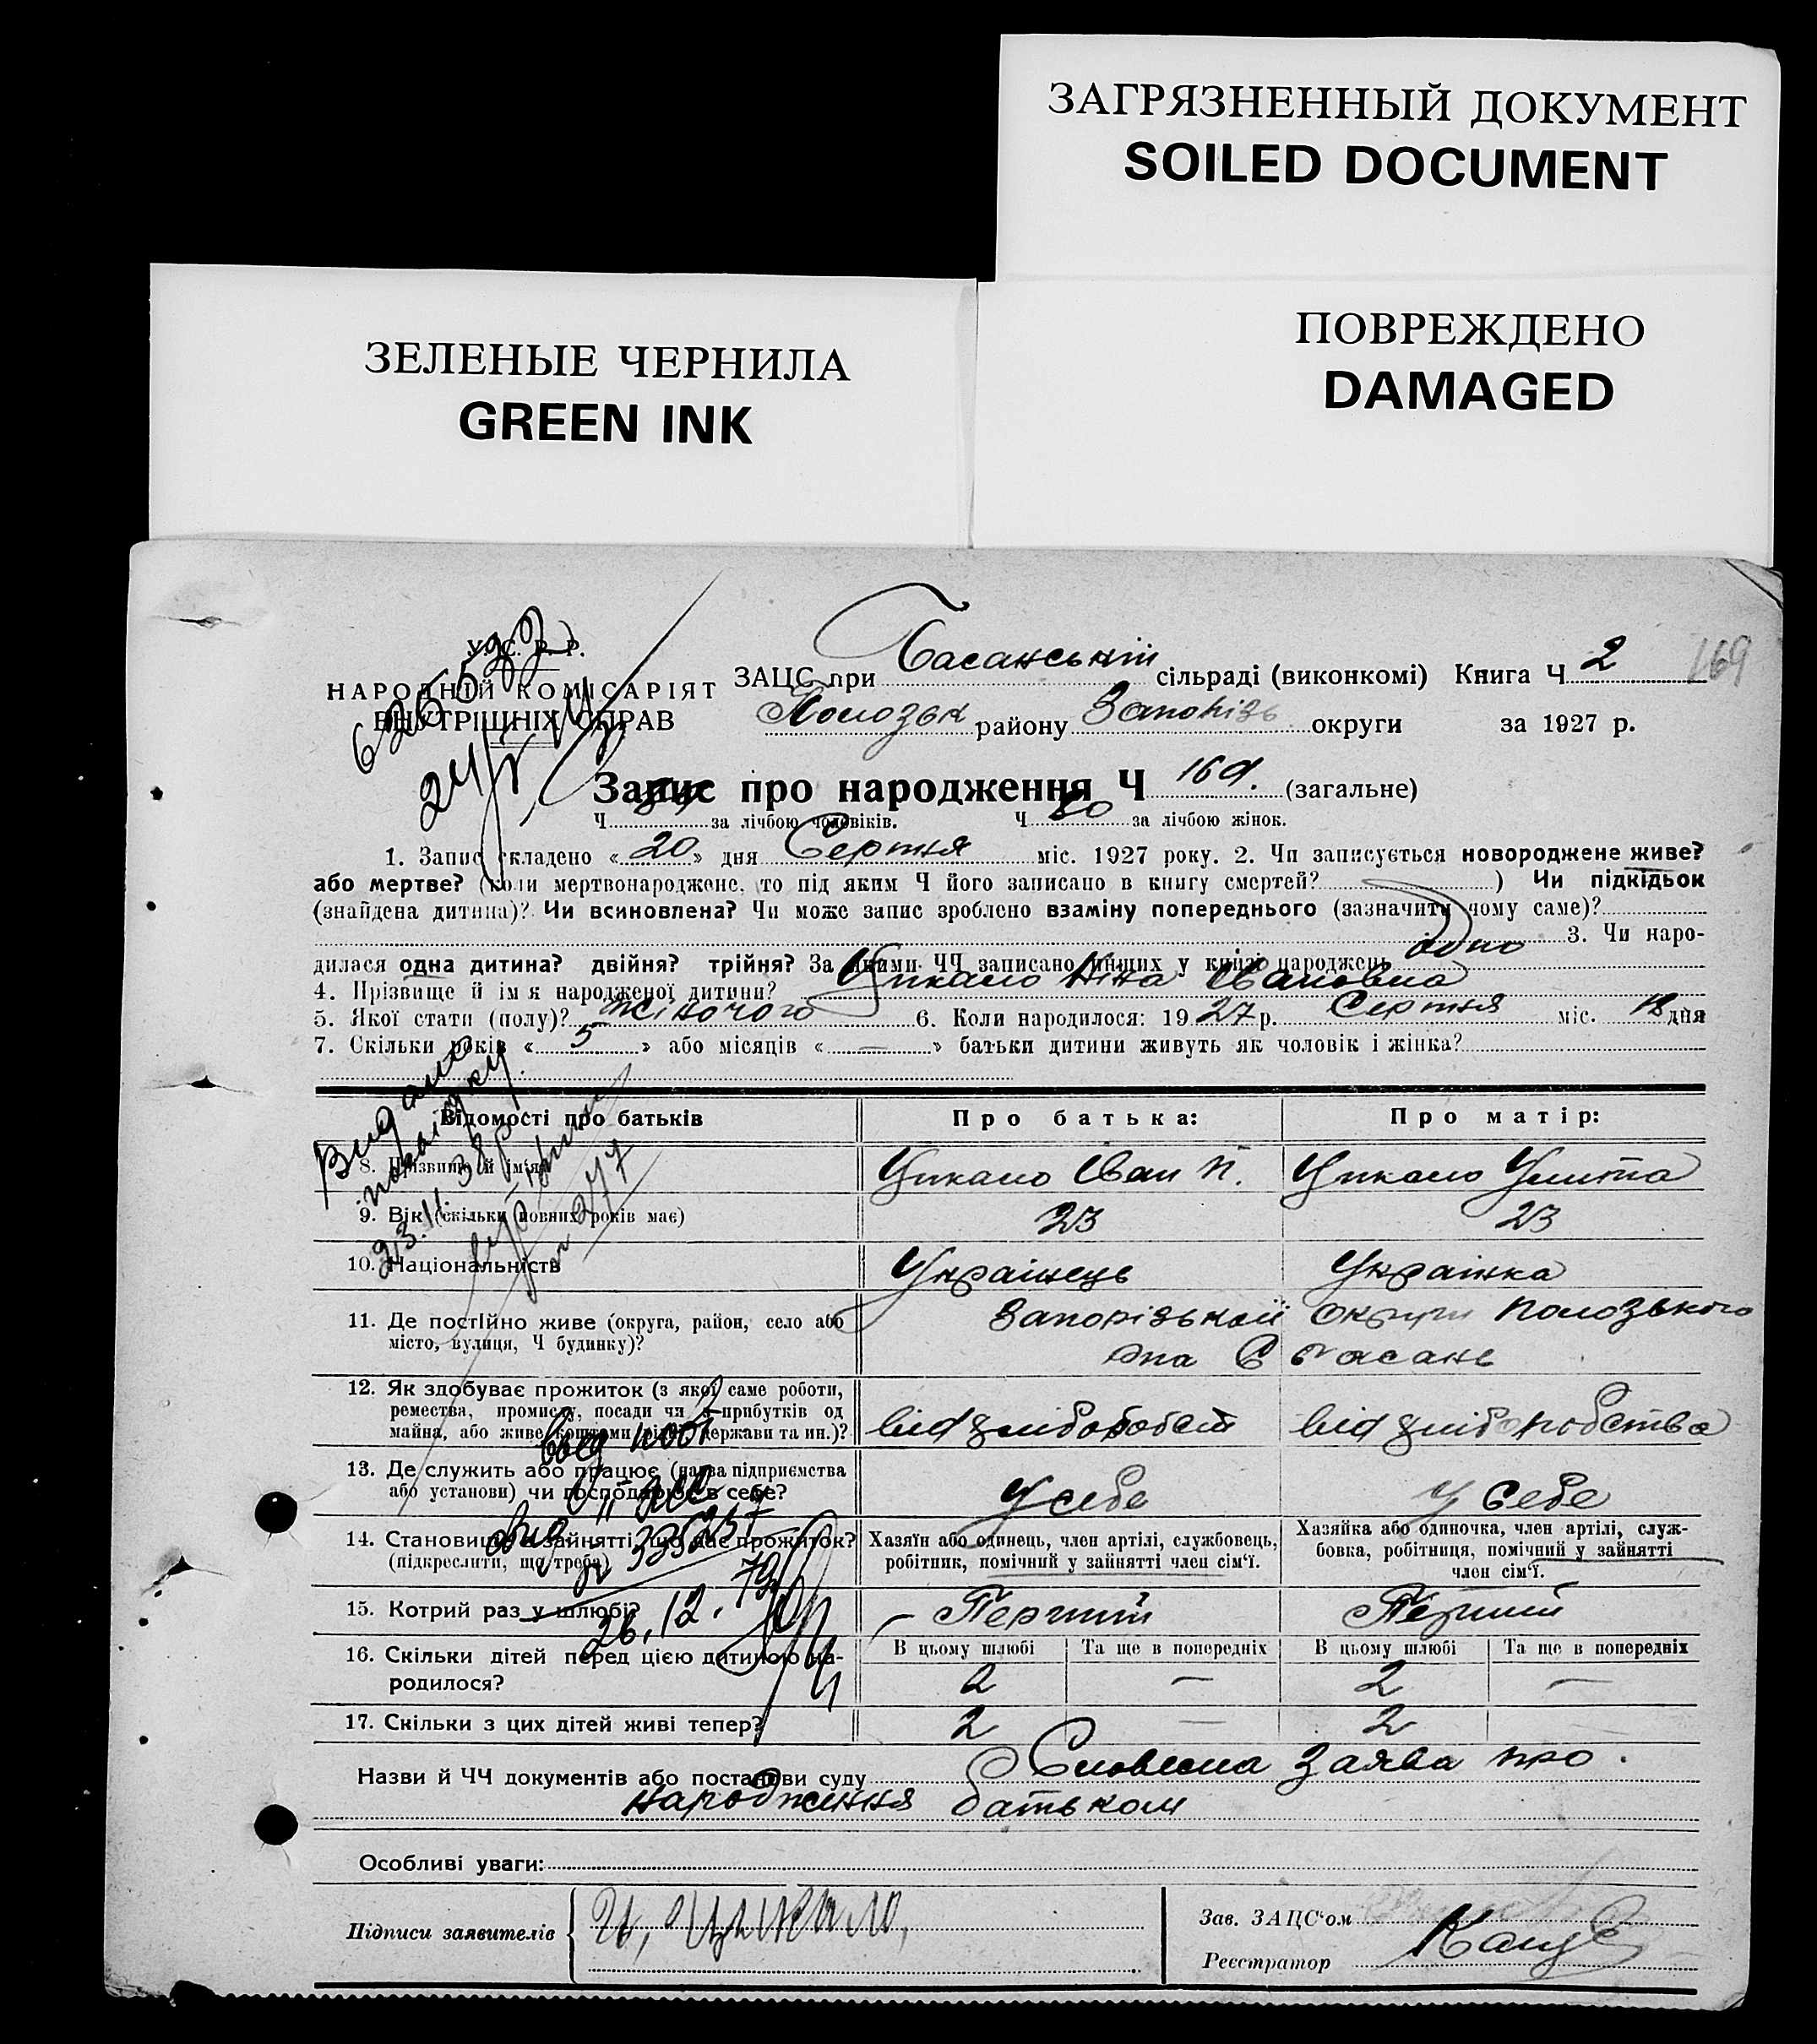 ЗАГРЯЗНЕННЫЙ ДОКУМЕНТ
SOILED DOCUMENT
ЗЕЛЕНЫЕ ЧЕРНИЛА
GREEN INK
ПОВРЕЖДЕНО
DAMAGED
У. С. Р. Р.
НАРОДНІЙ КОМІСАРІЯТ
ВНУТРІШНІХ СПРАВ
ЗАЦС при Басанській сільраді (виконкомі) Книга Ч 2 169
Полозьк району Запоріз округи за 1927 р.
Запис про народження Ч 169. (загальне)
Ч за лічбою чоловіків. Ч 80 за лічбою жінок.
1. Запис складено «20» дня Серпня міс. 1927 року. 2. Чи записується новороджене живе?
або мертве? (коли мертвонароджене, то під яким Ч його записано в книгу смертей? ) Чи підкідьок
(знайдена дитина)? Чи всиновлена? Чи може запис зроблено взаміну попереднього (зазначити чому саме)?
3. Чи наро-
дилася одна дитина? двійня? трійня? За якими ЧЧ записано инших у книзі народжень одно
4. Прізвище й ім'я народженої дитини? Цикало Ніна Івановна
5. Якої стати (полу)? Жіночого 6. Коли народилося: 1927 р. Серпня міс. 18 дня
7. Скільки років «5» або місяців «—» батьки дитини живуть як чоловік і жінка?
Відомості про батьків Про батька: Про матір:
8. Прізвище й ім'я Цикало Іван П. Цикало Улита
9. Вік (скільки повних років має) 23 23
10. Національність Українець Українка
11. Де постійно живе (округа, район, село або Запорізькой округи Полозького
місто, вулиця, Ч будинку)? рна С Басань
12. Як здобуває прожиток (з якої саме роботи,
ремества, промислу, посади чи з прибутків од
майна, або живе коштами рідні, держави та ин.)? від хліборобст від хліборобства
13. Де служить або працює (назва підприємства
або установи) чи господарює в себе? У себе У себе
14. Становище в зайнятті, що дає прожиток? Хазяїн або одинець, член артілі, службовець, Хазяйка або одиночка, член артілі, служ-
(підкреслити, що треба) робітник, помічний у зайнятті член сім'ї. бовка, робітниця, помічний у зайнятті
член сім'ї.
15. Котрий раз у шлюбі? Перший Перший
16. Скільки дітей перед цією дитиною на- В цьому шлюбі Та ще в попередніх В цьому шлюбі Та ще в попередніх
родилося? 2 — 2 —
17. Скільки з цих дітей живі тепер? 2 — 2
Назви й ЧЧ документів або постанови суду Словесна заява про
народження батьком
Особливі уваги:
Підписи заявителів И, Цикало,
Зав. ЗАЦС'ом
Реєстратор
Видано
23.11.38р
26.12.79